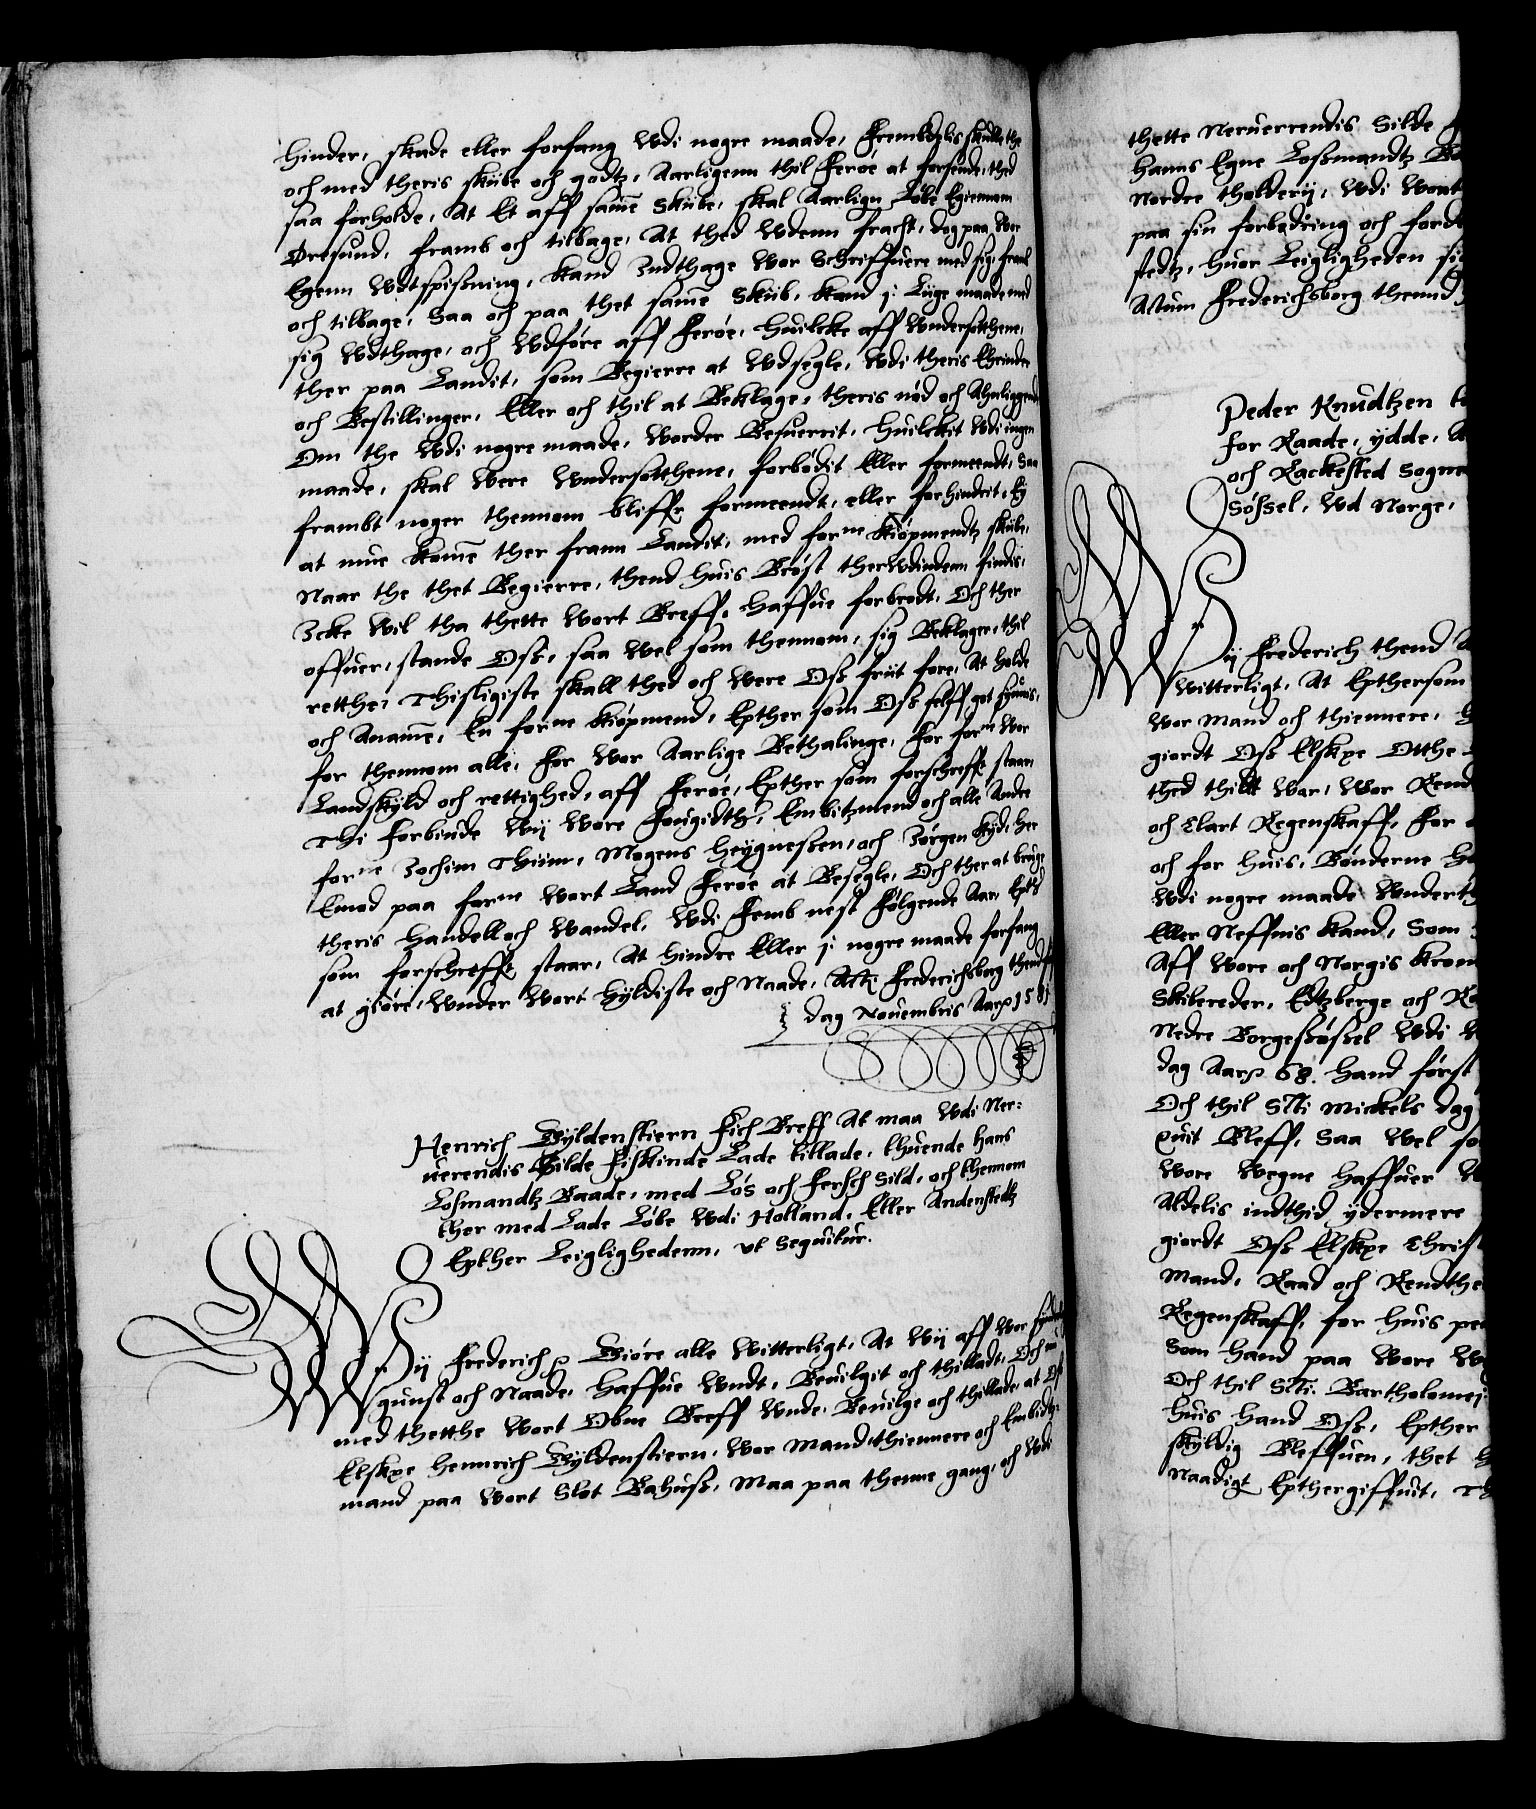 hinder, skade eller forfang wdi nogre maade, Frembdelis skulle the
och med theris skibe och godtz, Aarligenn thil Feröe at forsende, thed
saa forholde, At Et aff samme Skibe, skal Aarlign Löbe Egiennom
Öresund, framb och tilbage, At thed wdenn fracht, dog paa wor
Egenn wdtspisning, kand Indthage wor Schriffuere med sig, framb
och tilbage, Saa och paa thet samme Skib, kand j Liige maade med
sig wdthage, och wdföre aff Feröe, huilcke aff wndersotthene,
ther paa Landit, som Begierre at wdsegle, wdi theris Ehrinder
och Bestillinger, Eller och thil at Beklage, theris nöd och Ahnliggende
Om the wdi nogre maade, worder Besuerrit, huilckit wdi ingen
maade, skal were wndersotthene, forbodit Eller formeendt, Saa
frambt noger thennom bliffr formeendt, eller forhindrit, Ey
at mue komme ther frann Landit, med forne kiöpmendtz skibe,
Naar the thet Begierre, thend huis Bröst therwdindenn findis,
Icke wil tha thette wort Breff, haffue forbrodt, Och ther
offuer, stande Oss, saa wel som thennom, sig Beklager, thil
retthe, Thisligiste skall thed och were Oss friit fore, At holde
och Anamme, En forne kiöpmend, Epther som Oss self got siunis,
for thennom alle, for wor Aarlige Bethalinge, for forne wor
Landskyld och rettighed, aff Feröe, Epther som forschreffit staar,
Thi forbiude wij wore Fougidther, Embitzmend och alle Andre
forne Jochim Thiim, Mogens Heÿgnessen, och Jörgen Kyd, her
Emod paa forne wort Land Feröe at Besegle, Och ther at bruge
theris Handell och wandel, wdi Femb nest fölgende Aar, Epther
som forschreffit staar, At hindre Eller j nogre maade forfang
at giöre, wnder wort hyldiste och Naade, Actum Frederichsborg thend
dag Nouembris Aar 1581
Henrich Gyldenstiern fich Breff At maa wdi Ner-
uerendis Silde fiskinde Lade tillade, thuende hans
Losmandtz Baade, med Lös och fersch Sild, och thennom
ther med Lade Löbe wdi Holland, Eller Andenstedtz
Epther Leiglighedenn, vt Sequitur.
Wij Frederich Giöre alle witterligt, At wij aff wor synderlig
gunst och Naade, haffue wndt, Beuilgit och thilladt, Och nu
med thetthe wort Obne Breff wnde, Beuilge och thillade, at Oss
Elskee Hennrich Gyldenstiern, wor Mand, thiennere och Embidtz-
mand paa wort Slot Bahuss, Maa paa thenne gang, och wdi
thette Neruerrendis Silde
hanns Egne Lossmandtz
Nordre tholderij, wdi
paa sin forbedring och
stedtz, huor Leiligheden
Actum Frederichsborg thennd
Peder Knudtzen
for Raade, ydde,
och Rackested Sogne
Sössel, wd Norge,
Wij Frederich thend
witterligt, At Epthersom
wor Mand och thiennere,
giordt Oss Elskee Otthe
thed thill war, wor
och Clart Regenskaff, for
och for huis, Bönderne
wdi nogre maade
Eller Neffnis kand, Som
Aff wore och Norgis
Skibereder, Edtzberge och
Nedre Borgessössel wdi
dag Aar 68. hand först
Och thil Sti Mickels dag
quit Bleff, Saa wel
wore wegne haffuer
Aldelis indthid ydermere
giordt Oss Elskee
Mand, Raad och
Regenskaff, for huis
Som hand paa wore
Och thil Sti Bartholomej
huis hand Oss, Epther
skyldig Bleffuen, thet
Naadigt Epthergiffuit,